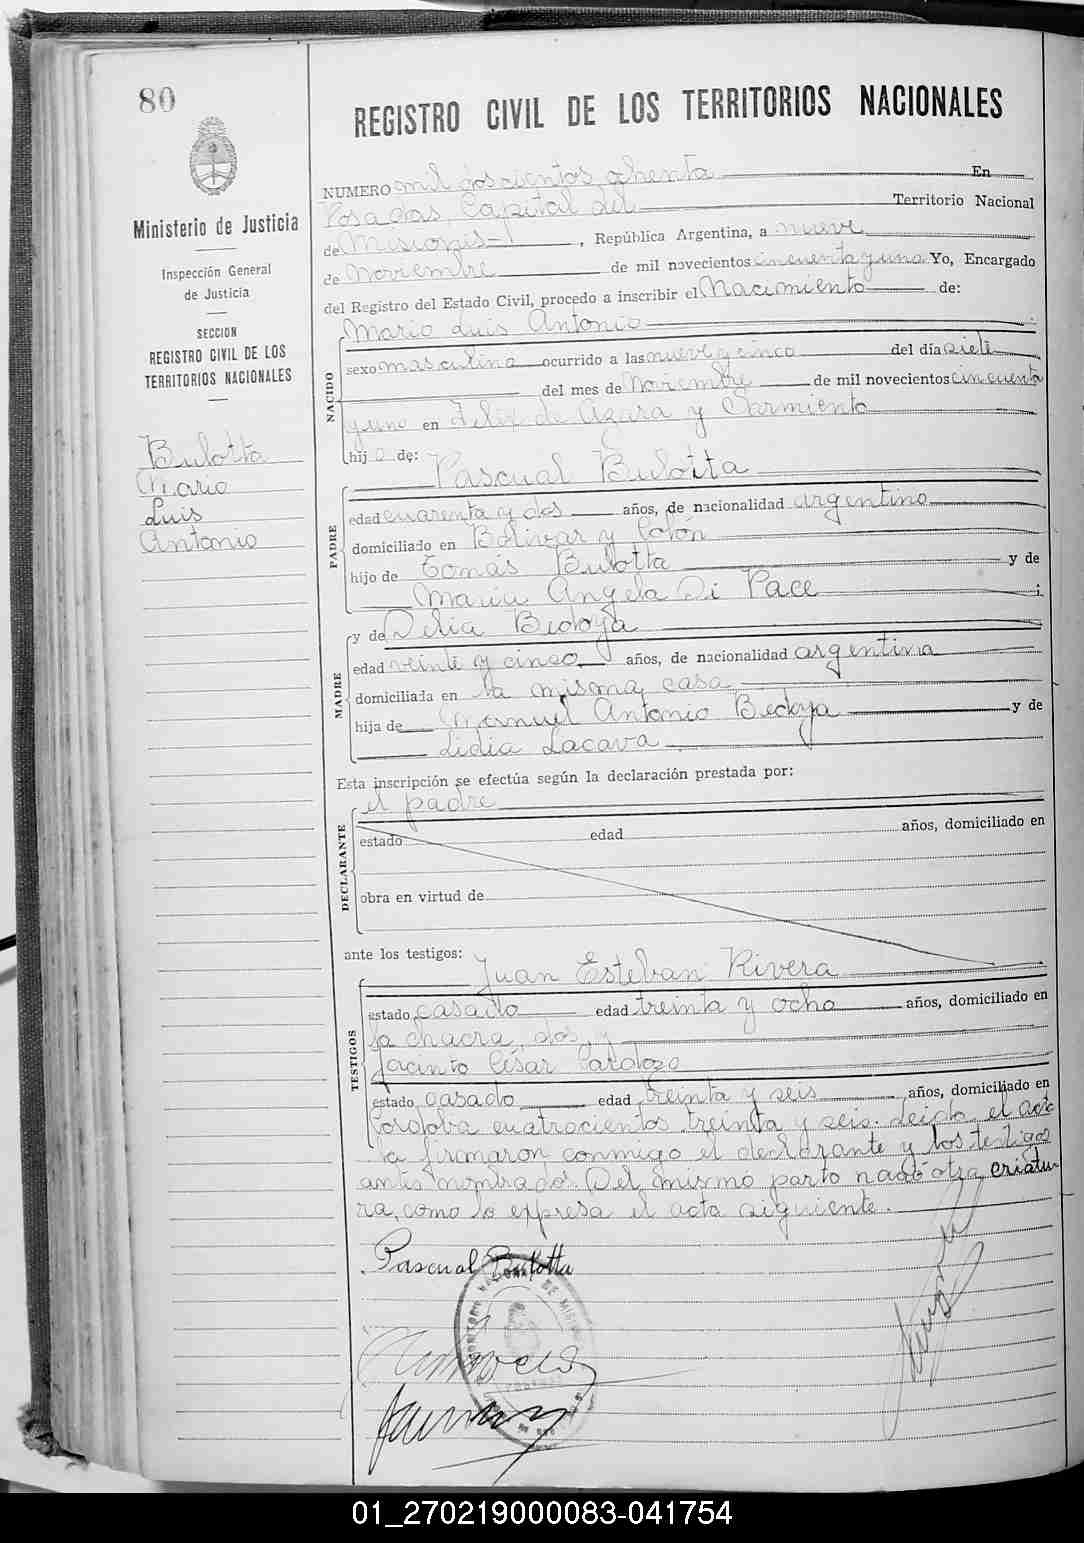 80
REGISTRO CIVIL DE LOS TERRITORIOS NACIONALES
Ministerio de Justicia
Inspección General
de Justicia
SECCION
REGISTRO CIVIL DE LOS
TERRITORIOS NACIONALES
Bulotta
Mario
Luis
Antonio
NUMERO mil doscientos ochenta En
Posadas, Capital del Territorio Nacional
de Misiones , República Argentina, a nueve
de Noviembre de mil novecientos cincuenta y uno Yo, Encargado
del Registro del Estado Civil, procedo a inscribir el Nacimiento de:
Mario Luis Antonio
NACIDO
sexo masculino ocurrido a las nueve y cinco del día siete
del mes de Noviembre de mil novecientos cincuenta
y uno en Félix de Azara y Sarmiento
hij o de:
Pascual Bulotta
PADRE
edad cuarenta y dos años, de nacionalidad argentino
domiciliado en Bolívar y Colón
hijo de Tomás Bulotta y de
María Angela Di Pace ;
MADRE
y de Delia Bedoya
edad veinte y cinco años, de nacionalidad argentina
domiciliada en la misma casa
hija de Manuel Antonio Bedoya y de
Lidia Lacava
Esta inscripción se efectúa según la declaración prestada por:
el padre
DECLARANTE
estado edad años, domiciliado en
obra en virtud de
ante los testigos:
Juan Esteban Rivera
TESTIGOS
estado casado edad treinta y ocho años, domiciliado en
la chacra dos, y
Jacinto César Cardozo
estado casado edad treinta y seis años, domiciliado en
Córdoba cuatrocientos treinta y seis. Leido el acta
la firmaron conmigo el declarante y los testigos
antes nombrados. Del mismo parto nació otra criatu-
ra, como lo expresa el acta siguiente.
Pascual Bulotta
01_270219000083-041754